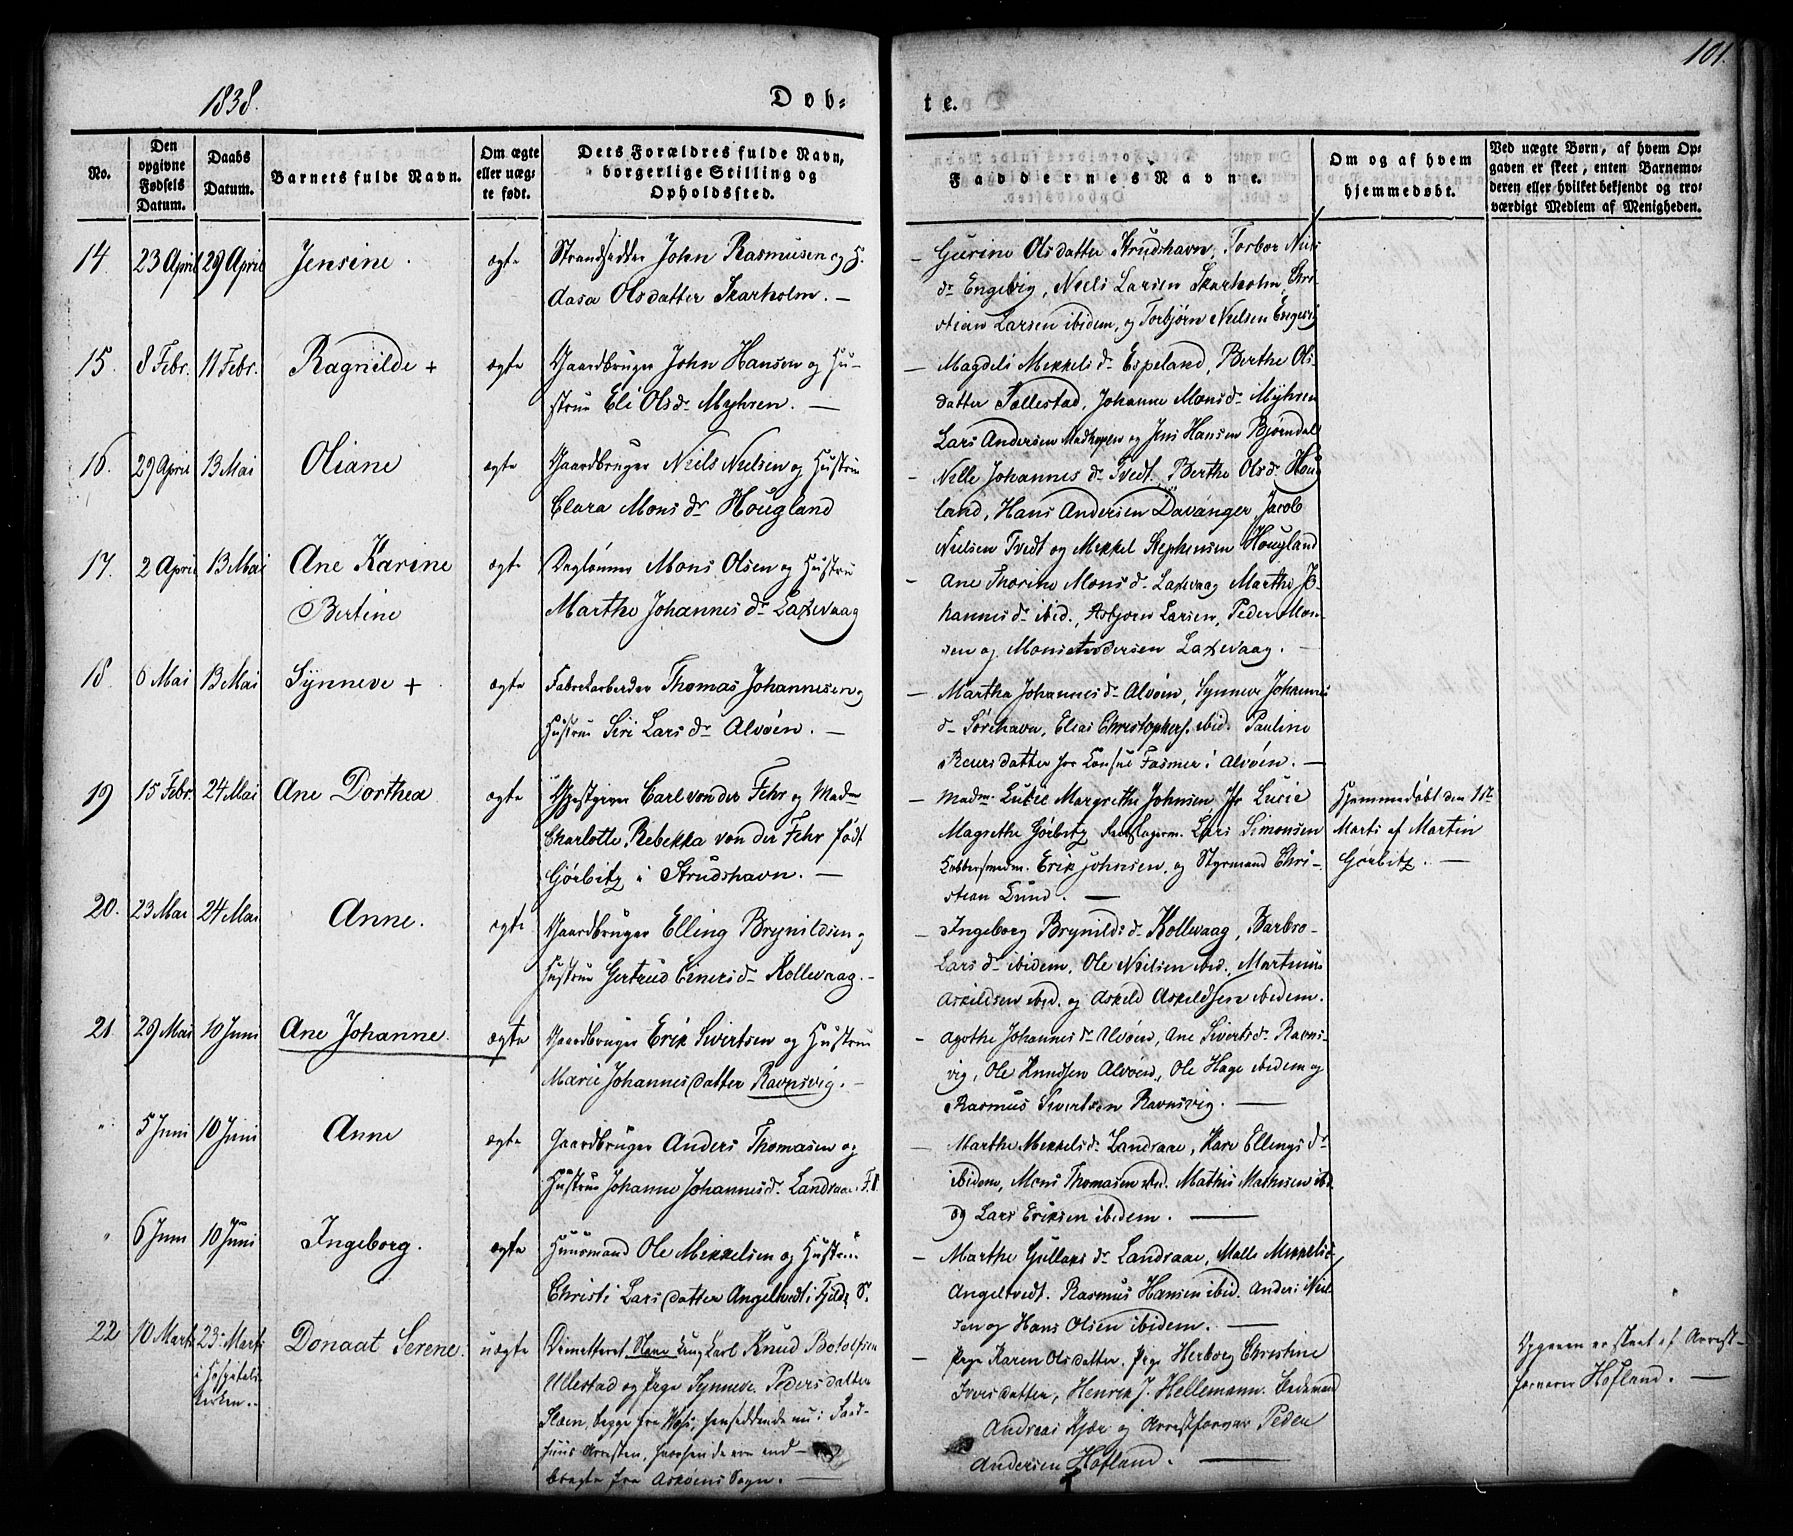 1838.
Døb-
te.
101.
No.
Den
opgivne
Fødsels
Datum.
Daabs
Datum.
Barnets fulde Navn.
Om ægte
eller uæg-
te født.
Dets Forældres fulde Navn,
borgerlige Stilling og
Opholdssted.
Faddernes Navne.
Om og af hvem
hjemmedøbt.
Ved uægte Børn, af hvem Op-
gaven er skeet, enten Barnemo-
deren eller hvilket bekjendt og tro-
værdigt Medlem af Menigheden.
14. 23 April 29 April Jensine. ægte
Strandsidder John Rasmusen og H.
Aasa Olsdatter Skarholm. —
— Gurine Olsdatter Strudshavn, Torbor Niels
dr Engevig, Niels Larsen Skarholm, Chri-
stian Larsen ibidem, og Torbjørn Nielsen Engevig
15. 8 Febr. 11 Febr. Ragnilde + ægte
Gaardbruger John Hansen og Hu-
strue Eli Olsdr Myhren. —
— Magdeli Mekkelsdr Espeland, Berthe Ols-
datter Tollestad, Johanne Monsdr Myhren
Lars Andersen Madhopen og Jens Hansen Bjørndal
16. 29 April 13 Mai Oliane ægte
Gaardbruger Niels Nielsen og Hustrue
Clara Mons dr Hougland
— Nille Johannes dr Tvedt, Berthe Olsdr Houg
land, Hans Andersen Davanger, Jacob
Nielsen Tvedt og Mekkel Stephensen Hougland
17. 2 April 13 Mai Ane Karine
Bertine
ægte
Daglønner Mons Olsen og Hustrue
Marthe Johannes dr Laxevaag
— Ane Thorine Mons dr Laxevaag Marthe Jo-
hannes dr ibid., Asbjørn Larsen, Peder Mon-
sen og Mons Andersen Laxevaag. —
18. 6 Mai 13 Mai Synneve + ægte
Fabrikarbeider Thomas Johannesen og
Hustrue Siri Lars dr Alvøen. —
— Martha Johannesdr Alvøen, Synneve Johannes
dr Sørehavn, Elias Christophers. ibid. Pauline
Beersdatter hos Consul Fasmer i Alvøen. —
19 15 Febr. 24 Mai Ane Dorthea ægte
Gjestgiver Carl von der Fehr og Madm
Charlotte Rebekka von der Fehr født
Gørbitz i Strudshavn. —
— Madm. Lucie Margrethe Johnsen, Jfr Lucie
Magrethe Gørbitz Lars Simonsen
Erik Johnsen, og Styrmand Chri-
stian Lund. —
Hjemmedøbt den 1ste
Marti af Martin
Gørbitz. —
20. 23 Mai 24 Mai Anne. ægte
Gaardbruger Elling Brynildsen og
Hustrue Gertrud Einersdr Kollevaag. -
— Ingeborg Brynilds dr Kollevaag, Barbro
Lars dr ibidem, Ole Nielsen ibid., Martinus
Askildsen ibid. og Askild Askildsen ibidem.
21. 29 Mai 10 Juni Ane Johanne. ægte
Gaardbruger Erik Sivertsen og Hustrue
Marie Johannesdatter Ravnsvig. —
— Agathe Johannes dr Alvøen, Ane Sivertsdr Ravns-
vig, Ole Knudsen Alvøen, Ole Hage ibidem og
Rasmus Sivertsen Ravnsvig. —
" 5 Juni 10 Juni Anne ægte
Gaardbruger Anders Thomasen og
Hustrue Johanne Johannesdr. Landraae,
— Marthe Mekkelsdr Landraae, Kari Ellings dr
ibidem, Mons Thomasen ibid. Mathis Mathisen ibd.
og Lars Eriksen ibidem. —
" 6 Juni 10 Juni Ingeborg. ægte
Huusmand Ole Mikkelsen og Hustrue
Christi Larsdatter Angeltvedt i Fjelds S.
— Marthe Gullaks dr Landraae, Malle Mekkelsd
Angeltvedt. Rasmus Hansen ibid. Anders Niel-
sen og Hans Olsen ibidem. —
22 10 Marts 23de Marti
i Hospitals
kirken..
Donaat Serene. uægte
Dimitteret Slave Ung Carl Knud Botolfsen
Ullestad og Pige Synneve Pedersdatter
Sløen, begge fra Voss, hensiddende nu i Raad-
huus Arresten, hvorhen de ere ind-
bragte fra Askøens Sogn. —
— Pige Karen Olsdatter, Pige Herborg Christine
Iversdatter, Henrik J. Hellemann.
Andreas Kjær og Arrestforvar Peder
Andersen Hofland. —
Opgaven er skeet af Arrest-
forvarer Hofland. —